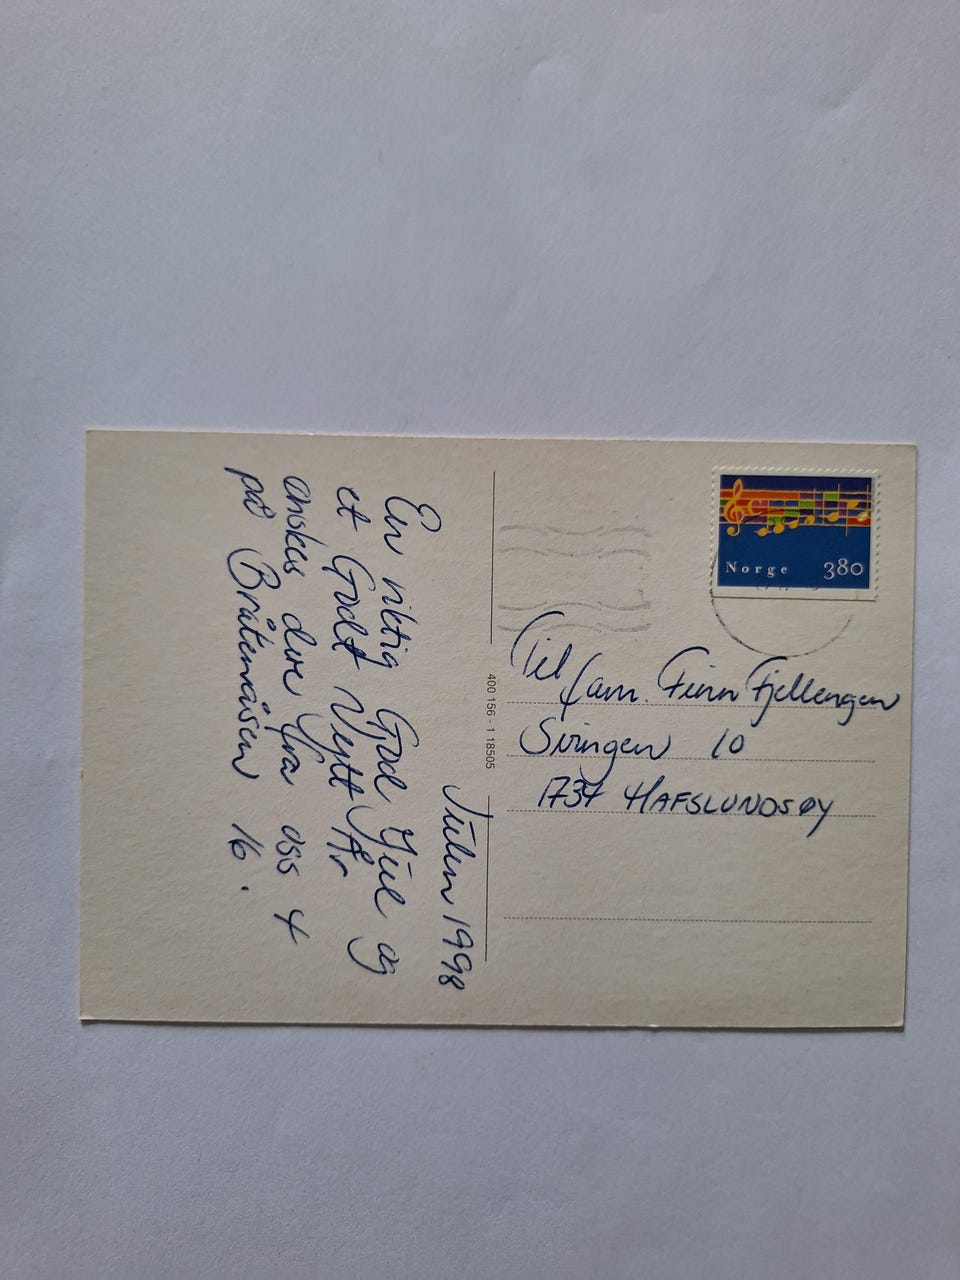 Julen 1998
En riktig God Jul og
et Godt Nytt År
ønskes dere fra oss 4
på Bråtenåsen 16.
400 156 - 1 18505
Norge 380
Til fam. Finn Fjellengen
Svingen 10
1734 HAFSLUNDSØY